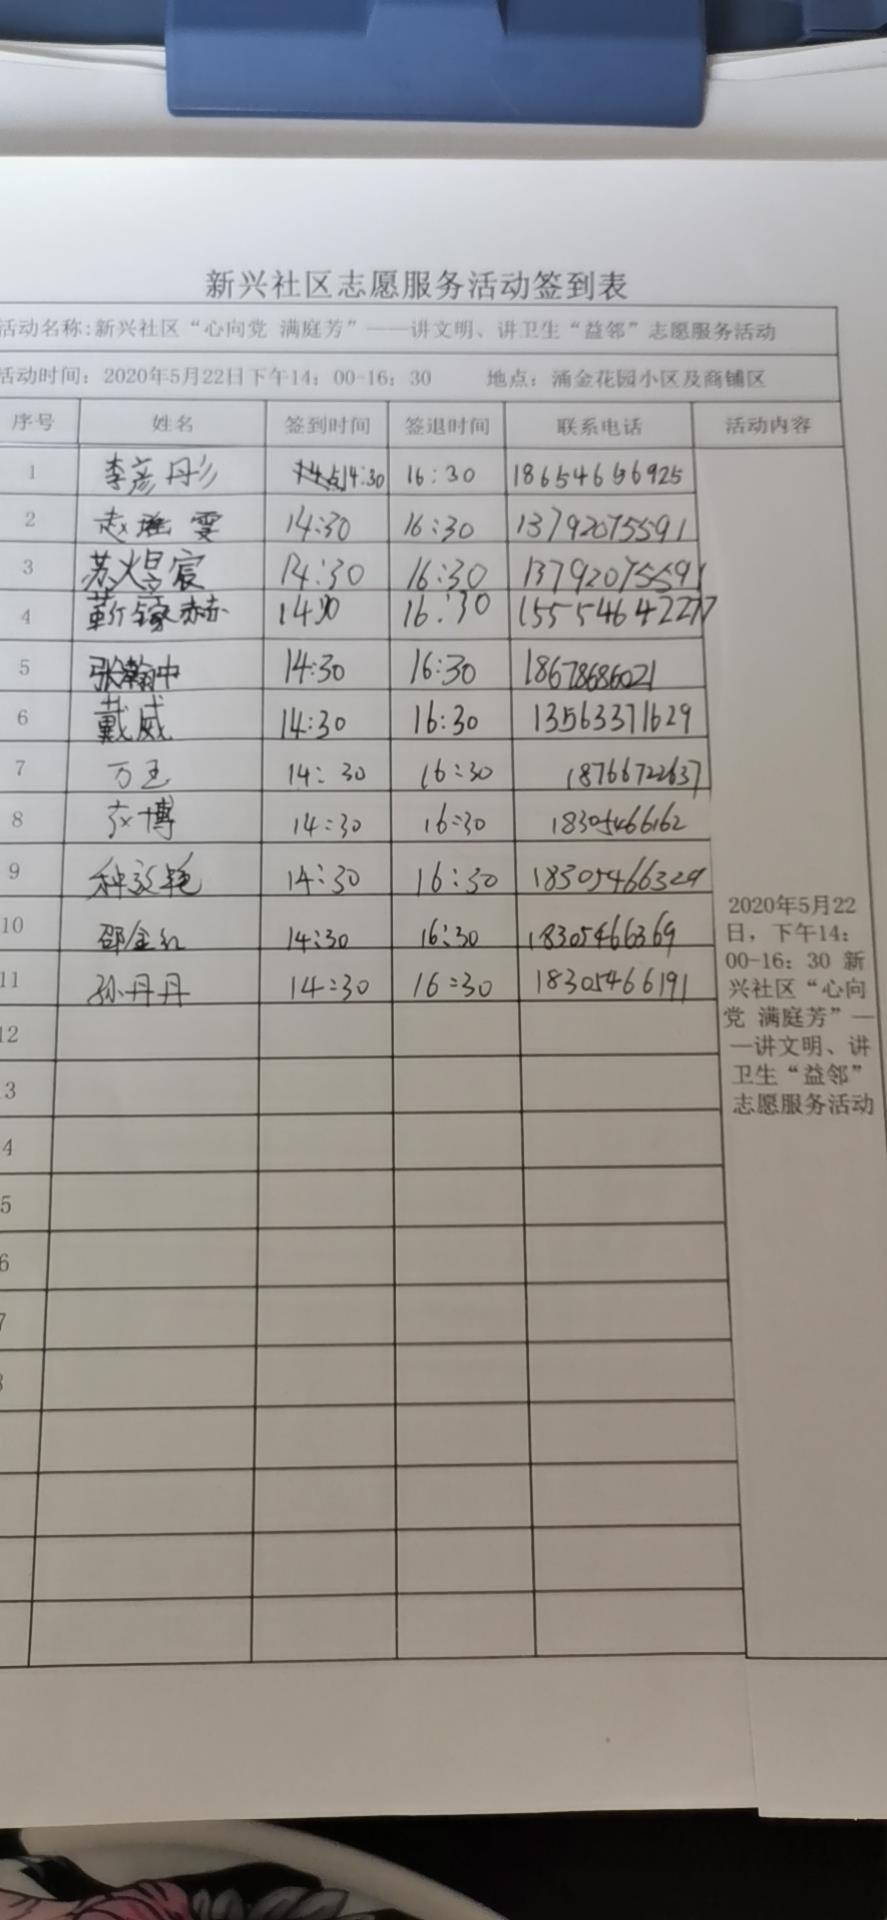 新兴社区志愿服务活动签到表
活动名称:新兴社区“心向党 满庭芳”——讲文明、讲卫生“益邻”志愿服务活动
活动时间：2020年5月22日下午14：00-16：30 地点：涌金花园小区及商铺区
序号 姓名 签到时间 签退时间 联系电话 活动内容
1 李彦彤 14:30 16:30 18654656925
2 赵 雯 14:30 16:30 13792075591
3 苏煜宸 14:30 16:30 13792075591
4 靳 赫 1430 16:30 15554642277
5 张瀚中 14:30 16:30 18678686021
6 戴威 14:30 16:30 13563371629
7 万玉 14:30 16:30 18766722637
8 博 14:30 16:30 18305466162
9 种 艳 14:30 16:30 18305466329
10 邵金红 14:30 16:30 18305466369
11 孙丹丹 14:30 16:30 18305466191
2020年5月22
日，下午14：
00-16：30 新
兴社区“心向
党 满庭芳”—
—讲文明、讲
卫生“益邻”
志愿服务活动
12
3
4
5
6
7